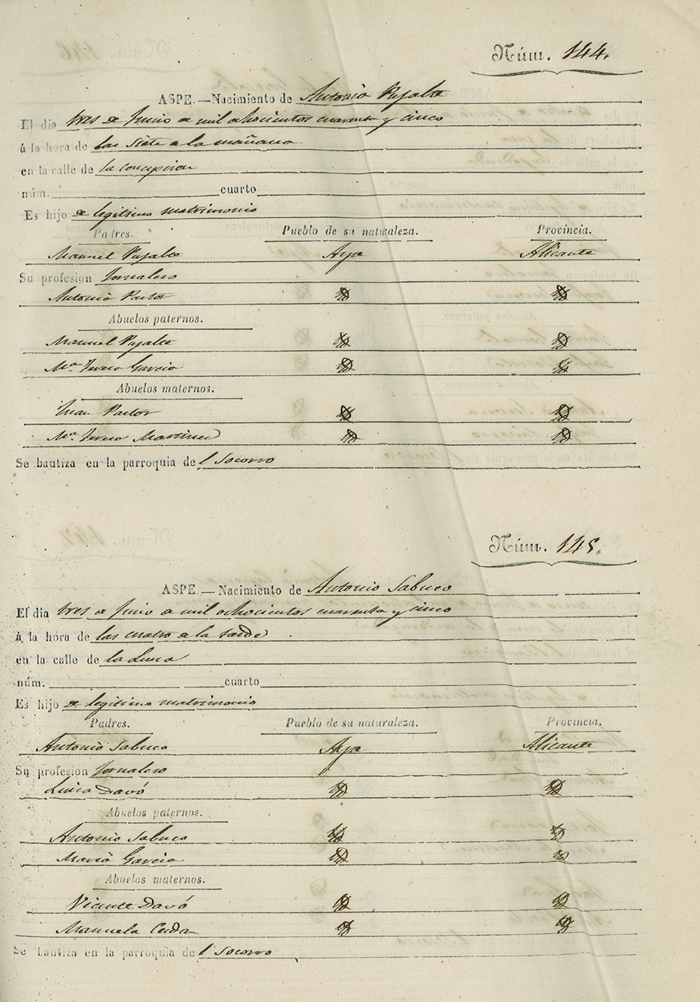 Núm. 144.
ASPE.—Nacimiento de Antonio Pujalte
El dia tres de Junio de mil ochocientos cuarenta y cinco
á la hora de las siete de la mañana
en la calle de la concepcion
núm. cuarto
Es hijo de legitimo matrimonio
Padres. Pueblo de su naturaleza. Provincia.
Manuel Pujalte Aspe Alicante
Su profesion Jornalero
Antonia Pastor
Abuelos paternos.
Manuel Pujalte
Mª Teresa Garcia
Abuelos maternos.
Juan Pastor
Mª Teresa Martinez
Se bautiza en la parroquia del Socorro
Núm. 145.
ASPE.—Nacimiento de Antonio Sabuco
El dia tres de Junio de mil ochocientos cuarenta y cinco
á la hora de las cuatro de la tarde
en la calle de la Luna
núm. cuarto
Es hijo de legitimo matrimonio
Padres. Pueblo de su naturaleza. Provincia.
Antonio Sabuco Aspe Alicante
Su profesion Jornalero
Luisa Davó
Abuelos paternos.
Antonio Sabuco
Maria Garcia
Abuelos maternos.
Vicente Davó
Manuela
Se bautiza en la parroquia del Socorro